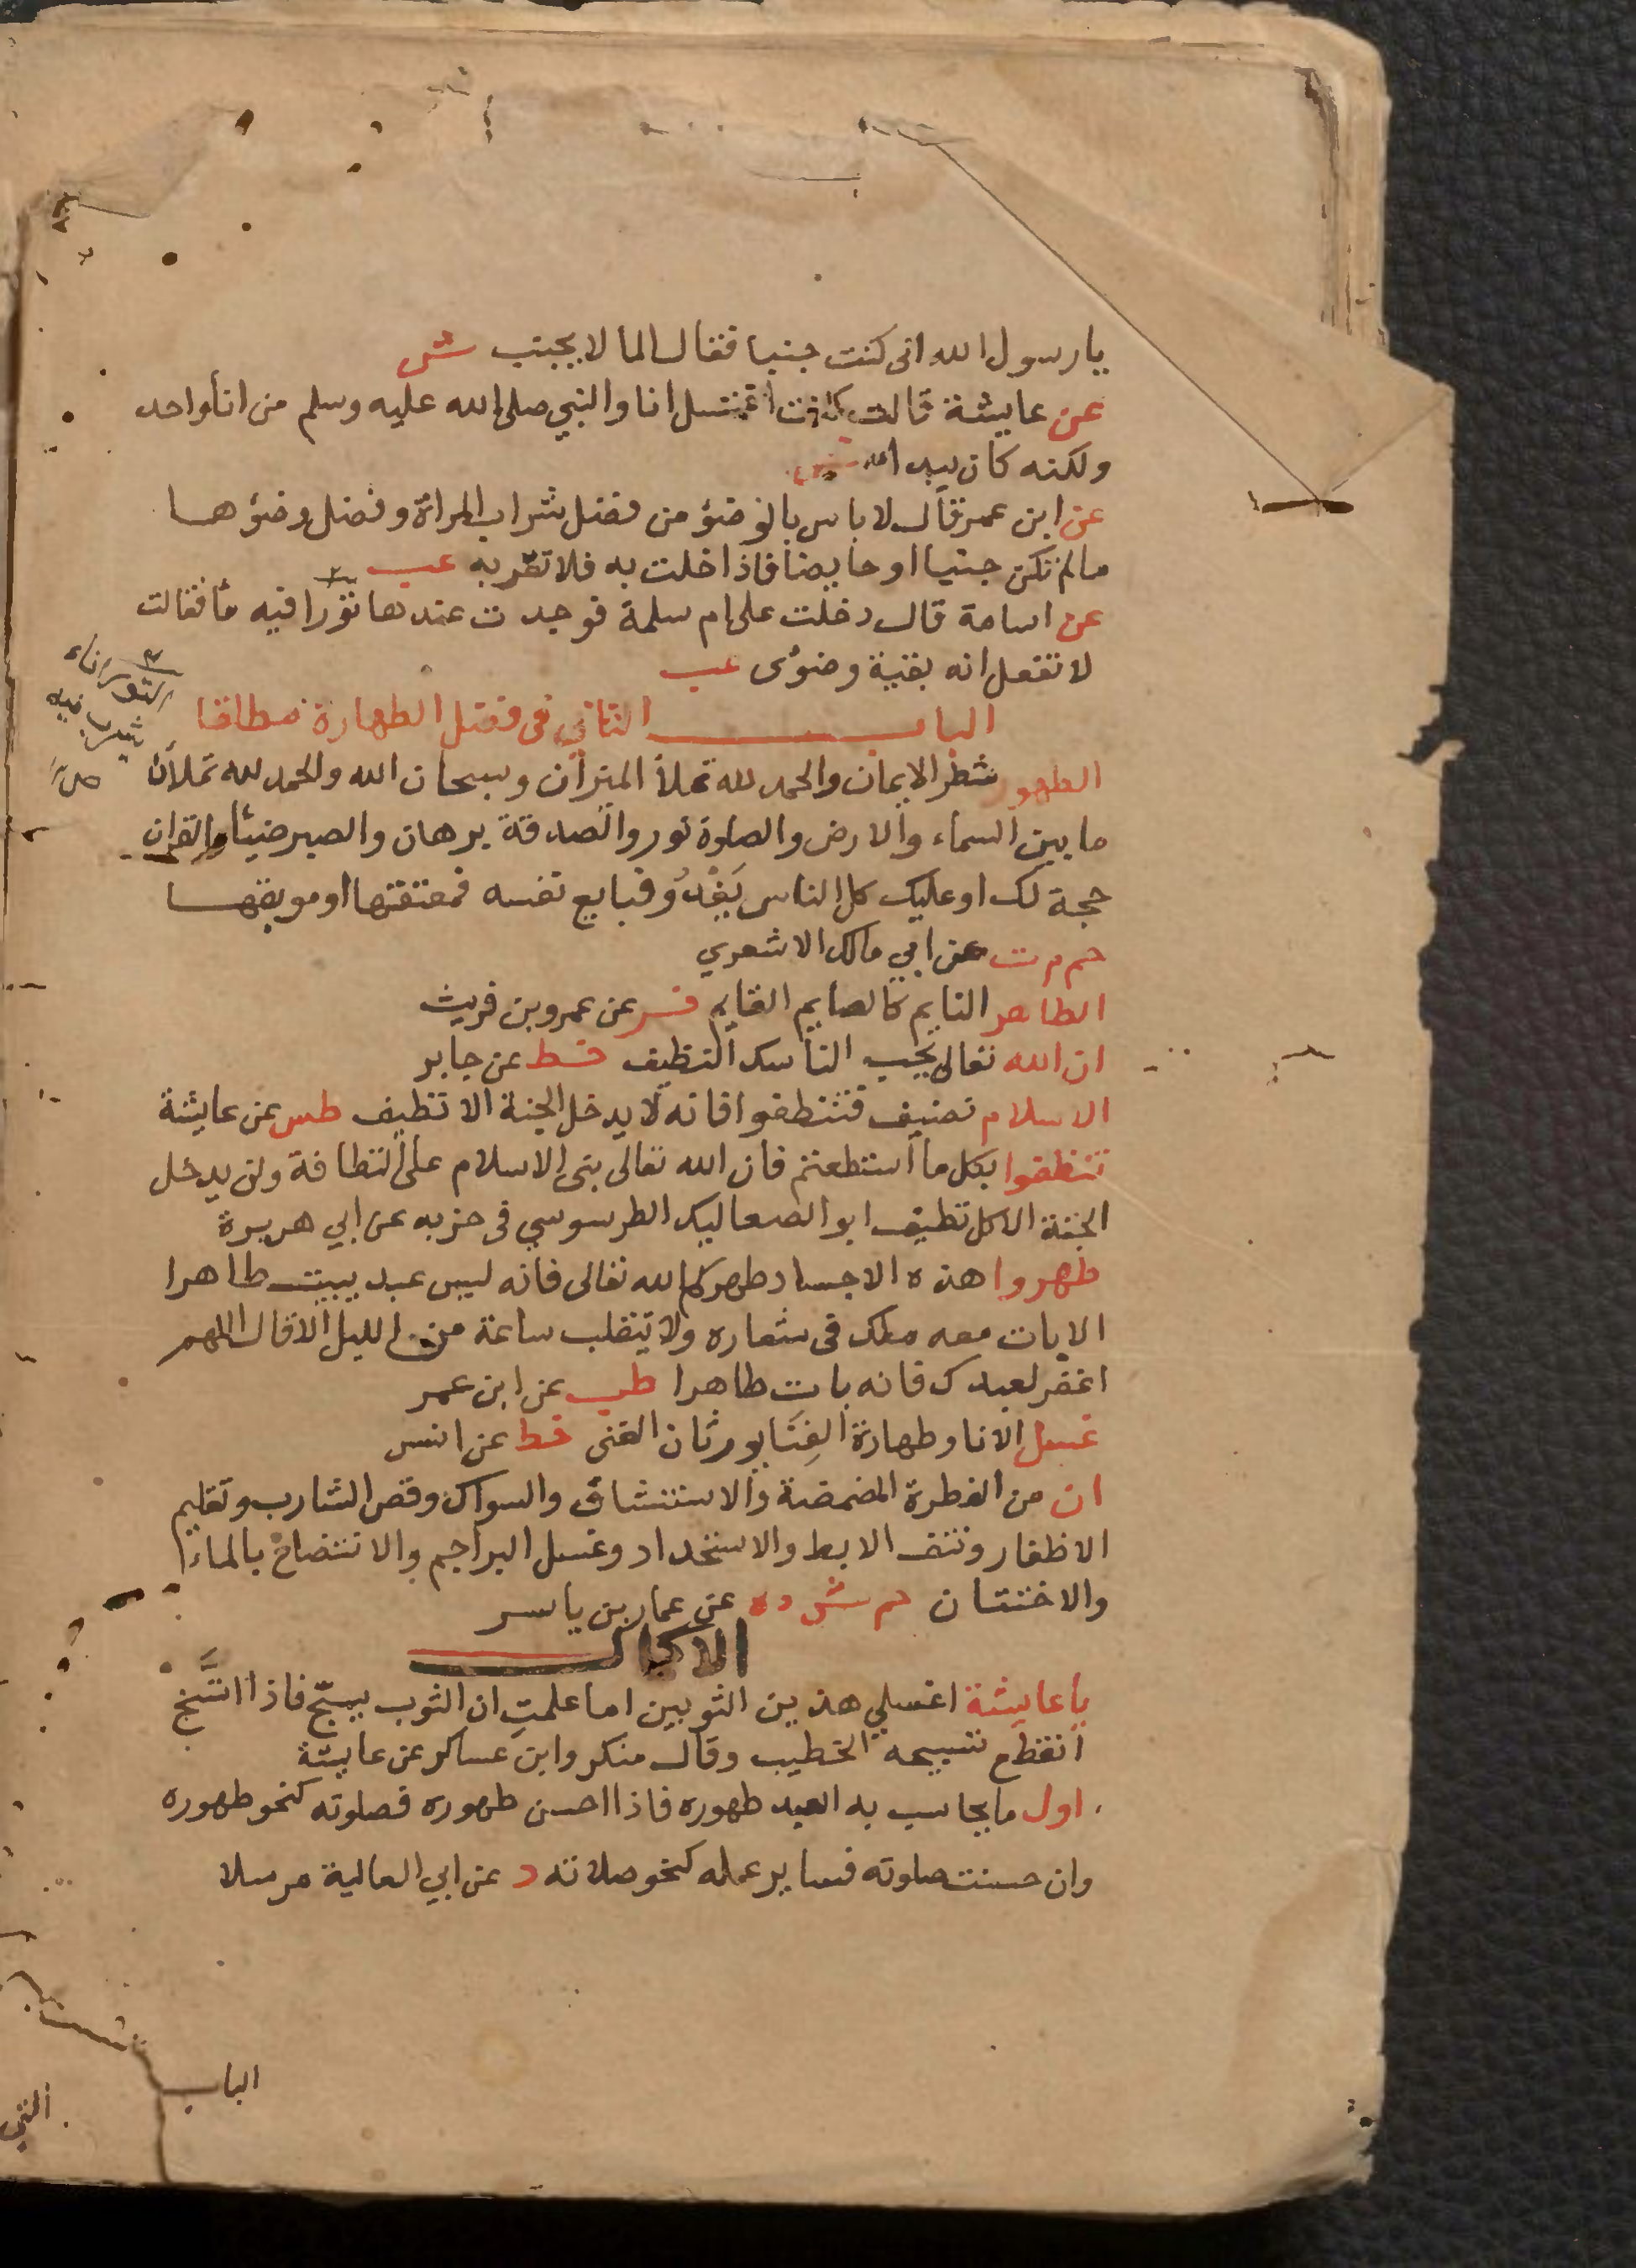 يا رسول الله انى كنت جنبا فقال الما لا يجنب ش
عن عايشة قالت كنت اغتسل انا والنبي صلى الله عليه وسلم من انأ واحد
ولكنه كان يبدا ش
عن ابن عمر قال لا باس بالوضؤ من فضل شراب المراة وفضل وضؤها
مالم تكن جنبا او حايضا فاذا خلت به فلا تقربه عب
عن اسامة قال دخلت على ام سلمة فوجدت عندها تورا فيه مأ فقالت
لا تفعل انه بقية وضوئى عب
الباب الثاني فى فضل الطهارة مطلقا
الطهور شطر الايمان والحمد لله تملأ الميزان وسبحان الله والحمد لله تملأن
ما بين السماء والارض والصلوة نور والصدقة برهان والصبر ضيئا والقران
حجة لك او عليك كل الناس يَغْدُو فبايع نفسه فمعتقتها او موبقها
حم م ت عن ابي مالك الاشعري
الطاهر النايم كالصايم القايم فر عن عمرو بن قريث
ان الله تعالى يحب الناسك النظيف خط عن جابر
الاسلام نضيف فتنظفوا فانه لا يدخل الجنة الا نظيف طس عن عايشة
تنظفوا بكل ما استطعتم فان الله تعالى بنى الاسلام على النظافة ولن يدخل
الجنة الا كل نظيف ابو الصعاليك الطرسوسي فى جزبه عن ابي هريرة
طهروا هذه الاجساد طهركم الله تعالى فانه ليس عبد يبيت طاهرا
الا بات معه ملك فى شعاره ولا يتقلب ساعة من الليل الا قال اللهم
اغفر لعبدك فانه بات طاهرا طب عن ابن عمر
غسل الانا وطهارة الفِنَا يورثان الغنى خط عن انس
ان من الفطرة المضمضة والاستنشاق والسواك وقص الشارب وتقليم
الاظفار ونتف الابط والاستحداد وغسل البراجم والانتضاح بالماء
والاختتان حم ش د ه عن عمار بن ياسر
الاكمال
يا عايشة اغسلي هذين الثوبين اما علمتِ ان الثوب يسبّح فاذا اتّسخ
انقطع تسبيحه الخطيب وقال منكر وابن عساكر عن عايشة
اول ما يحاسب به العبد طهوره فاذا احسن طهوره فصلوته كنحو طهوره
وان حسنت صلوته فساير عمله كنحو صلاته د عن ابي العالية مرسلا
التور اناء
يشرب فيه
الباب